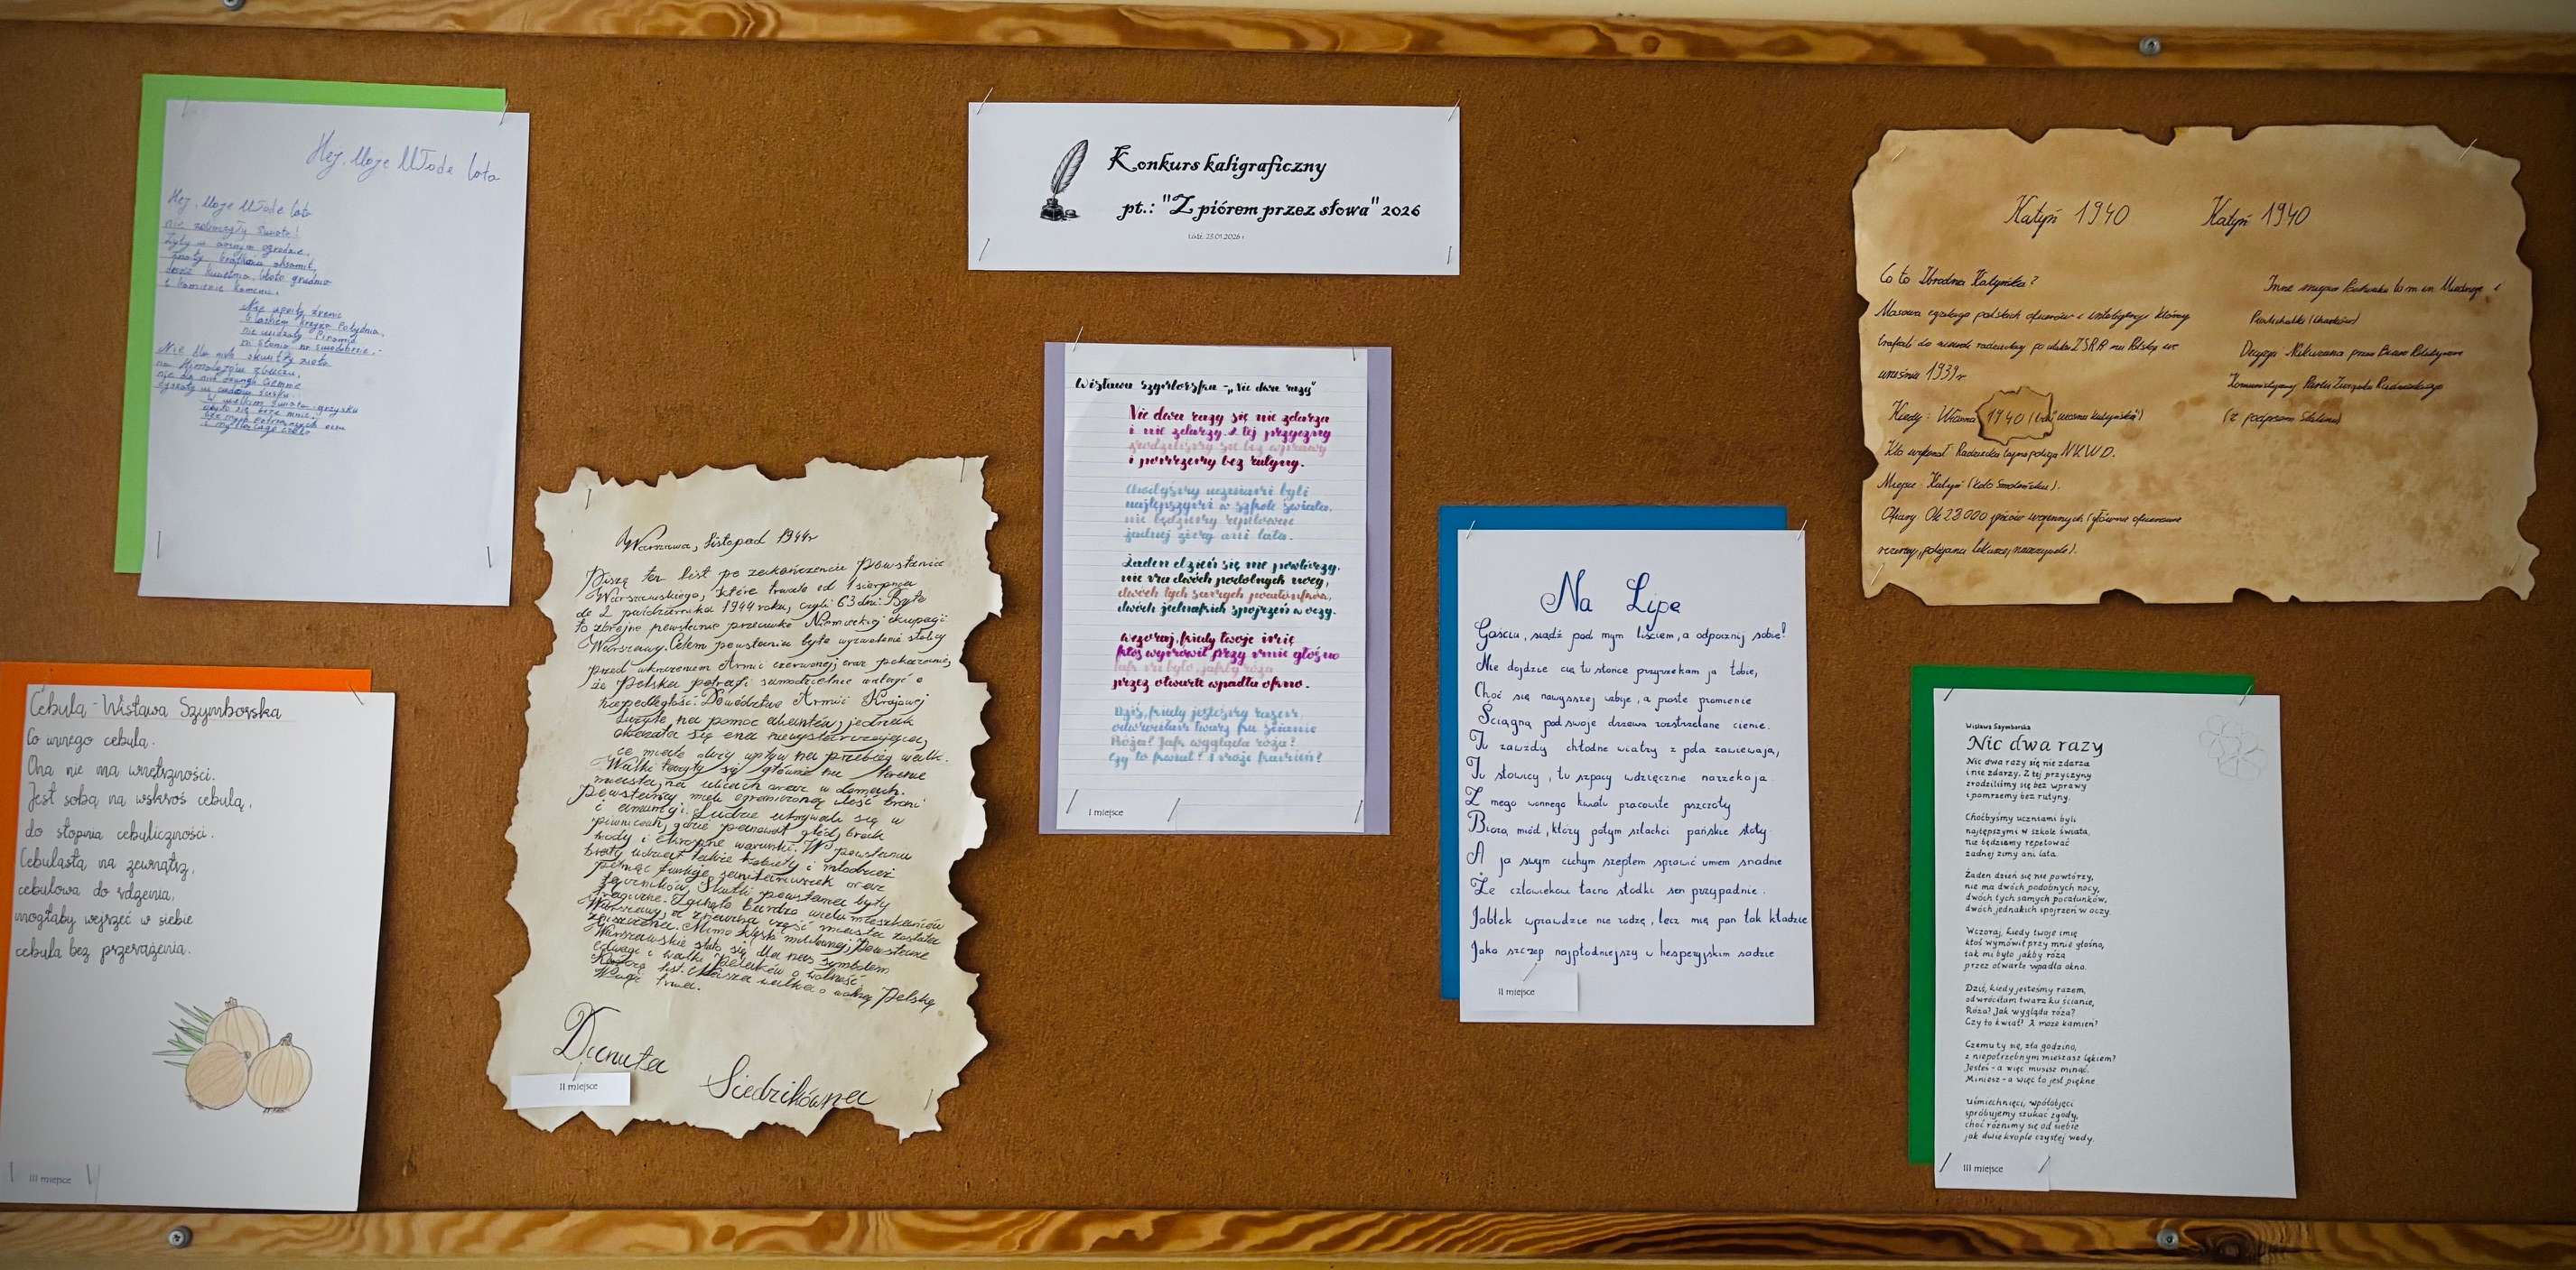 Konkurs kaligraficzny
pt.: "Z piórem przez słowa" 2026
Łódź, 23.01.2026 r.
Hej, Moje Młode lata
Hej, Moje Młode lata
nie zobaczyły świata!
żyły w ogrodzie,
i kamienie
nie widziały Piramid
Nie dla nich złota
na Himalajów zboczu,
nie dla nich ciemne
Cebula - Wisława Szymborska
Co innego cebula.
Ona nie ma wnętrzności.
Jest sobą na wskroś cebulą,
do stopnia cebuliczności.
Cebulasta na zewnątrz,
cebulowa do rdzenia,
mogłaby wejrzeć w siebie
cebula bez przerażenia.
III miejsce
Warszawa, listopad 1944r
Piszę ten list po zakończeniu Powstania
Warszawskiego, które trwało od 1 sierpnia
do 2 października 1944 roku, czyli 63 dni. Było
to zbrojne powstanie przeciwko Niemieckiej okupacji
Warszawy. Celem powstania było wyzwolenie stolicy
przed wkroczeniem Armii czerwonej oraz pokazanie,
że Polska potrafi samodzielnie walczyć o
niepodległość. Dowództwo Armii Krajowej
liczyło na pomoc aliantów, jednak
okazała się ona niewystarczająca,
co miało duży wpływ na przebieg walk.
Walki toczyły się głównie na terenie
miasta, na ulicach oraz w domach.
Powstańcy mieli ograniczoną ilość broni
i amunicji. Ludzie ukrywali się w
piwnicach, gdzie panował głód, brak
wody i okropne warunki. W powstaniu
brały udział także kobiety i młodzież
pełniąc funkcje sanitariuszek oraz
łączników. Skutki powstania były
tragiczne. Zginęło bardzo wielu mieszkańców
Warszawy, a znaczna część miasta została
zniszczona. Mimo klęski militarnej, Powstanie
Warszawskie stało się dla nas symbolem
odwagi i walki Polaków o wolność.
Kończę list. Nasza walka o wolną Polskę
Wciąż trwa.
Danuta
Siedzikówna
II miejsce
Wisława Szymborska - "Nic dwa razy"
Nic dwa razy się nie zdarza
i nie zdarzy. Z tej przyczyny
zrodziliśmy się bez wprawy
i pomrzemy bez rutyny.
Choćbyśmy uczniami byli
najlepszymi w szkole świata,
nie będziemy repetować
żadnej zimy ani lata.
Żaden dzień się nie powtórzy,
nie ma dwóch podobnych nocy,
dwóch tych samych pocałunków,
dwóch jednakich spojrzeń w oczy.
Wczoraj, kiedy twoje imię
ktoś wymówił przy mnie głośno
tak mi było, jakby róża
przez otwarte wpadła okno.
Dziś, kiedy jesteśmy razem,
odwróciłam twarz ku ścianie
Róża? Jak wygląda róża?
Czy to kwiat? A może kamień?
I miejsce
Na Lipę
Gościu, siądź pod mym liściem, a odpocznij sobie!
Nie dojdzie cię tu słońce przyrzekam ja tobie,
Choć się nawyższej wzbije, a proste promienie
Ściągną pod swoje drzewa rozstrzelane cienie.
Tu zawżdy chłodne wiatry z pola zawiewają,
Tu słowicy, tu szpacy wdzięcznie narzekają.
Z mego wonnego kwiatu pracowite pszczoły
Biorą miód, który potym szlachci pańskie stoły
A ja swym cichym szeptem sprawić umiem snadnie
Że człowiekowi łacno słodki sen przypadnie.
Jabłek wprawdzie nie rodzę, lecz mię pan tak kładzie
Jako szczep najpłodniejszy w hesperyjskim sadzie
II miejsce
Katyń 1940
Co to Zbrodnia Katyńska?
Masowa egzekucja polskich oficerów i inteligencji, którzy
trafili do niewoli radzieckiej po ataku ZSRR na Polskę we
wrześniu 1939r
Kiedy: Wiosna 1940 (tzw "wiosna katyńska")
Kto wykonał Radziecka tajna policja NKWD.
Miejsce: Katyń (koło Smoleńska).
Ofiary Ok 22000 jeńców wojennych (głównie oficerowie
rezerwy, policjanci lekarze, nauczyciele).
Katyń 1940
Inne miejsca to m.in. Miednoje i
Piatichatki (Charków)
Decyzja: Nakazana przez Biuro Polityczne
Komunistycznej Partii Związku Radzieckiego
(z podpisem Stalina)
Wisława Szymborska
Nic dwa razy
Nic dwa razy się nie zdarza
i nie zdarzy. Z tej przyczyny
zrodziliśmy się bez wprawy
i pomrzemy bez rutyny.
Choćbyśmy uczniami byli
najlepszymi w szkole świata,
nie będziemy repetować
żadnej zimy ani lata.
Żaden dzień się nie powtórzy,
nie ma dwóch podobnych nocy,
dwóch tych samych pocałunków,
dwóch jednakich spojrzeń w oczy.
Wczoraj, kiedy twoje imię
ktoś wymówił przy mnie głośno,
tak mi było jakby róża
przez otwarte wpadła okno.
Dziś, kiedy jesteśmy razem,
odwróciłam twarz ku ścianie,
Róża? Jak wygląda róża?
Czy to kwiat? A może kamień?
Czemu ty się, zła godzino,
z niepotrzebnym mieszasz lękiem?
Jesteś - a więc musisz minąć.
Miniesz - a więc to jest piękne.
Uśmiechnięci, współobjęci
spróbujemy szukać zgody,
choć różnimy się od siebie
jak dwie krople czystej wody.
III miejsce